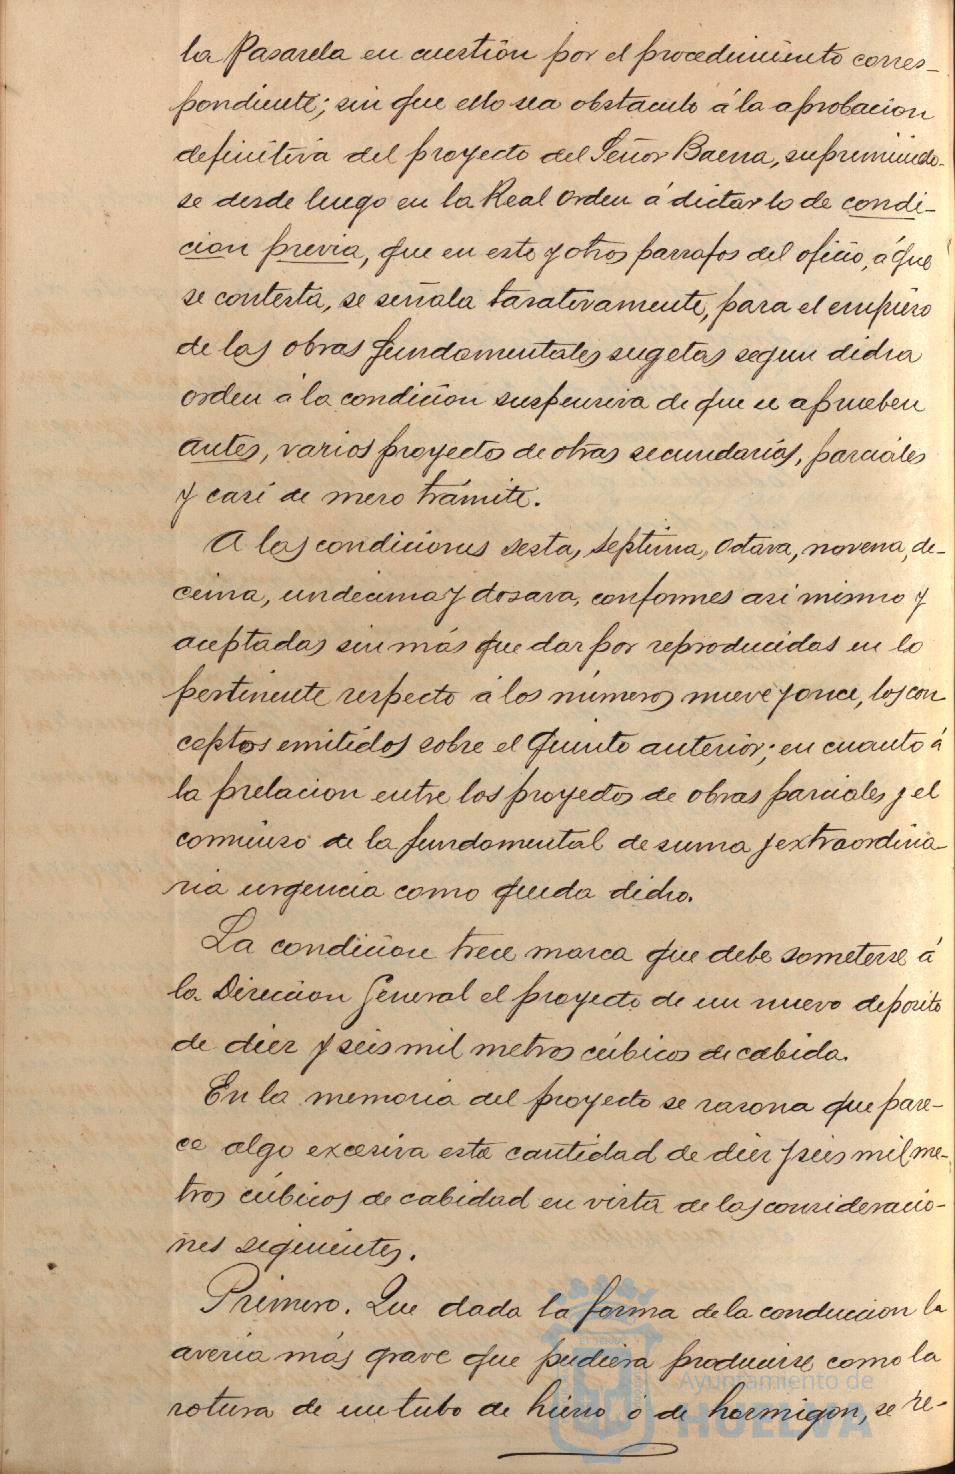 la Pasarela en cuestión por el procedimiento corres-
pondiente; sin que ello sea obstaculo á la aprobacion
definitiva del proyecto del Señor Baena, suprimiendo-
se desde luego en la Real Orden á dictar lo de condi-
cion previa, que en este y otros parrafos del oficio, á que
se contesta, se señala tasativamente, para el empiezo
de las obras fundamentales sugetas segun dicha
orden á la condicion suspensiva de que se aprueben
antes, varios proyectos de obras secundarias, parciales
y casi de mero trámite.
A las condiciones sexta, septima, octava, novena, de-
cima, undecima y dosava, conformes asi mismo y
aceptadas sin más que dar por reproducidas en lo
pertinente respecto á los números nueve y once, los con
ceptos emitidos sobre el quinto anterior; en cuanto á
la prelacion entre los proyectos de obras parciales y el
comienso de la fundamental de suma y extraordina-
ria urgencia como queda dicho.
La condicion trece marca que debe someterse á
la Direccion General el proyecto de un nuevo deposito
de diez y seis mil metros cúbicos de cabida.
En la memoria del proyecto se rasona que pare-
ce algo excesiva esta cantidad de diez y seis mil me-
tros cúbicos de cabidad en vista de las consideracio-
nes siguientes.
Primero. Que dada la forma de la conduccion la
averia más grave que pudiera producirse como la
rotura de un tubo de hierro ó de hormigon, se re-
Ayuntamiento de
HUELVA